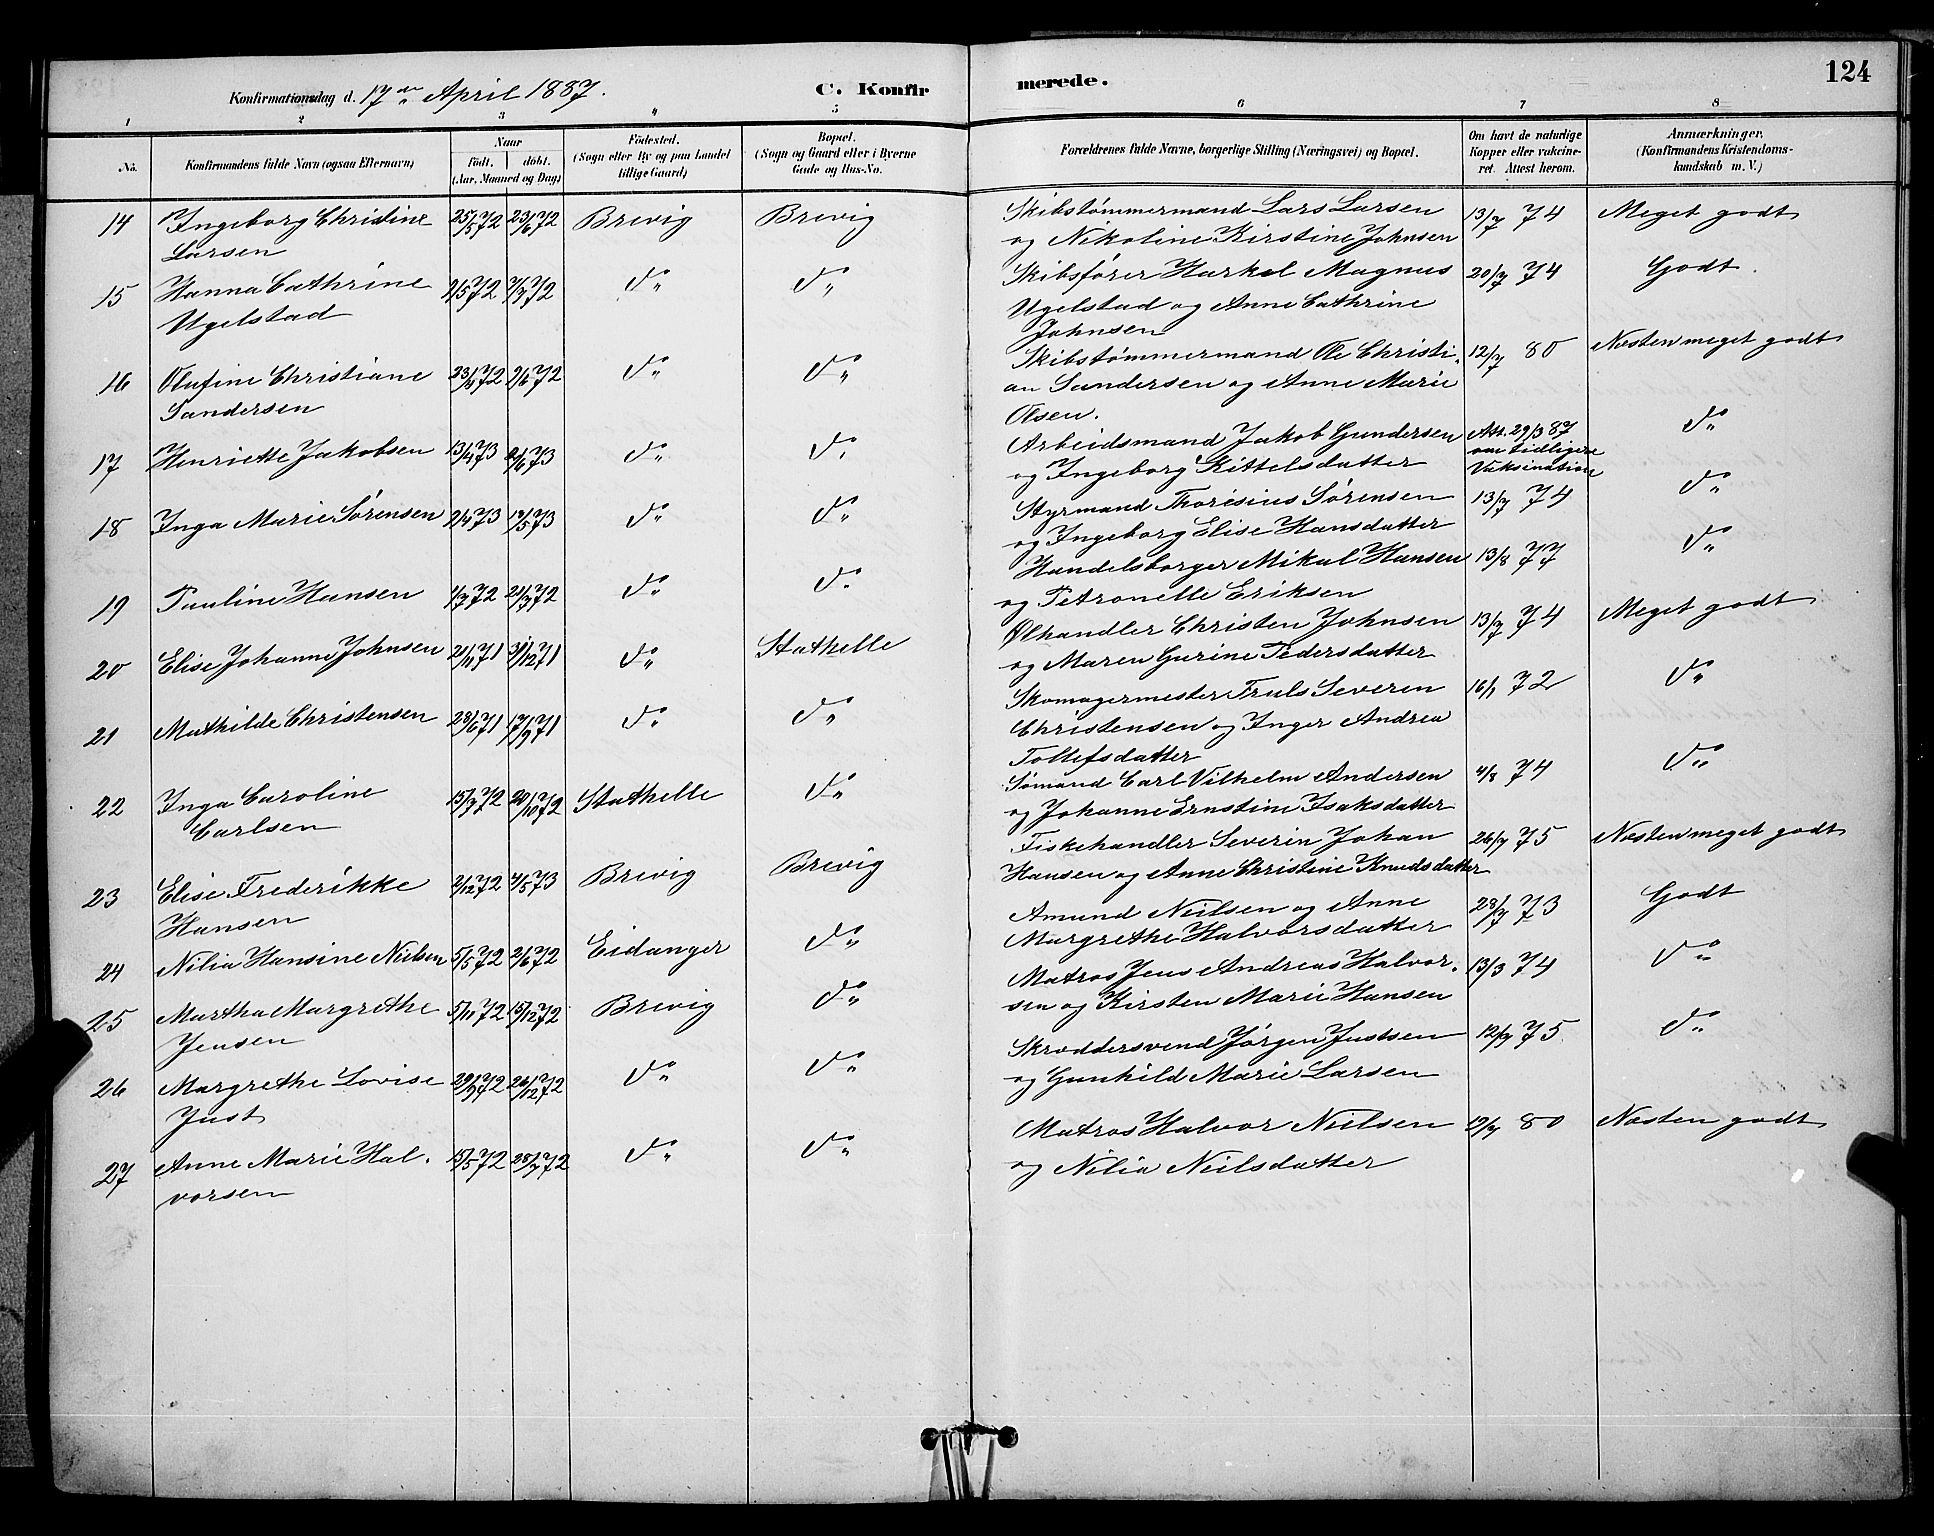 124
Konfirmationsdag d. 17de April 1887. C. Konfirmerede.
1 2 3 4 5 6 7 8
No. Konfirmandens fulde Navn (ogsaa Efternavn) Naar födt. döbt. (Aar, Maaned og Dag) Födested. (Sogn eller By og paa Landet tillige Gaard) Bopæl. (Sogn og Gaard eller i Byerne Gade og Hus-No. Forældrenes fulde Navne, borgerlige Stilling (Næringsvei) og Bopæl. Om havt de naturlige Kopper eller vakcineret. Attest herom. Anmærkninger. (Konfirmandens Kristendomskundskab m. V.)
14 Ingeborg Christine 25/5 72 23/6 72 Brevig Brevig Skibstømmermand Lars Larsen 13/7 74 Meget godt
Larsen og Nikoline Kirstine Johnsen
15 Hanna Cathrine 2/5 72 7/7 72 do do Skibsfører Harkel Magnus 20/7 74 Godt.
Ugelstad Ugelstad og Anne Cathrine
Johnsen
16 Olufine Christiane 23/4 72 2/6 72 do do Skibstømmermand Ole Christi- 12/7 80 Næsten meget godt
Sandersen an Sandersen og Anne Marie
Olsen.
17 Henriette Jakobsen 13/4 73 2/6 73 do do Arbeidsmand Jakob Gundersen Att. 29/3 87 do
og Ingeborg Kittelsdatter om tidligere
Vaksination
18 Inga Marie Sørensen 2/4 73 do do Styrmand Thoresius Sørensen 13/7 74 do
og Ingeborg Elise Hansdatter
19 Pauline Hansen 1/7 72 21/7 72 do do Handelsborger Mikal Hansen 13/8 77 do
og Petronelle Eriksen
20 Elise Johanne Johnsen 21/11 71 31/12 71 do Stathelle Ølhandler Christen Johnsen 13/7 74 Meget godt
og Maren Gurine Pedersdatter
21 Mathilde Christensen 28/6 71 17/9 71 do do Skomagermester Truls Severen 16/1 72 do
Christensen og Inger Andrea
Tollefsdatter
22 Inga Caroline 15/7 72 20/10 72 Stathelle do Sømand Carl Vilhelm Andersen 4/8 74 do
Carlsen og Johanne Ernstine Isaksdatter
23 Elise Frederikke 2/12 72 4/5 73 Brevig Brevig Fiskehandler Severin Johan 26/7 75 Næsten meget godt
Hansen Hansen og Anne Christine Knudsdatter
24 Nilia Hansine Nielsen 5/5 72 2/6 72 Eidanger do Amund Nielsen og Anne 28/7 73 Godt
Margrethe Halvorsdatter
25 Martha Margrethe 5/11 72 15/12 72 Brevig do Matros Jens Andreas Halvor- 13/3 74 do
Jensen sen og Kirsten Marie Hansen
26 Margrethe Lovise 29/9 72 26/12 72 do do Skræddersvend Jørgen Justsen 12/7 75. do
Just og Gunhild Marie Larsen
27 Anne Marie Hal- 15/5 72 28/7 72 do do Matros Halvor Nielsen 12/7 80 Næsten godt
vorsen og Nilia Neilsdatter